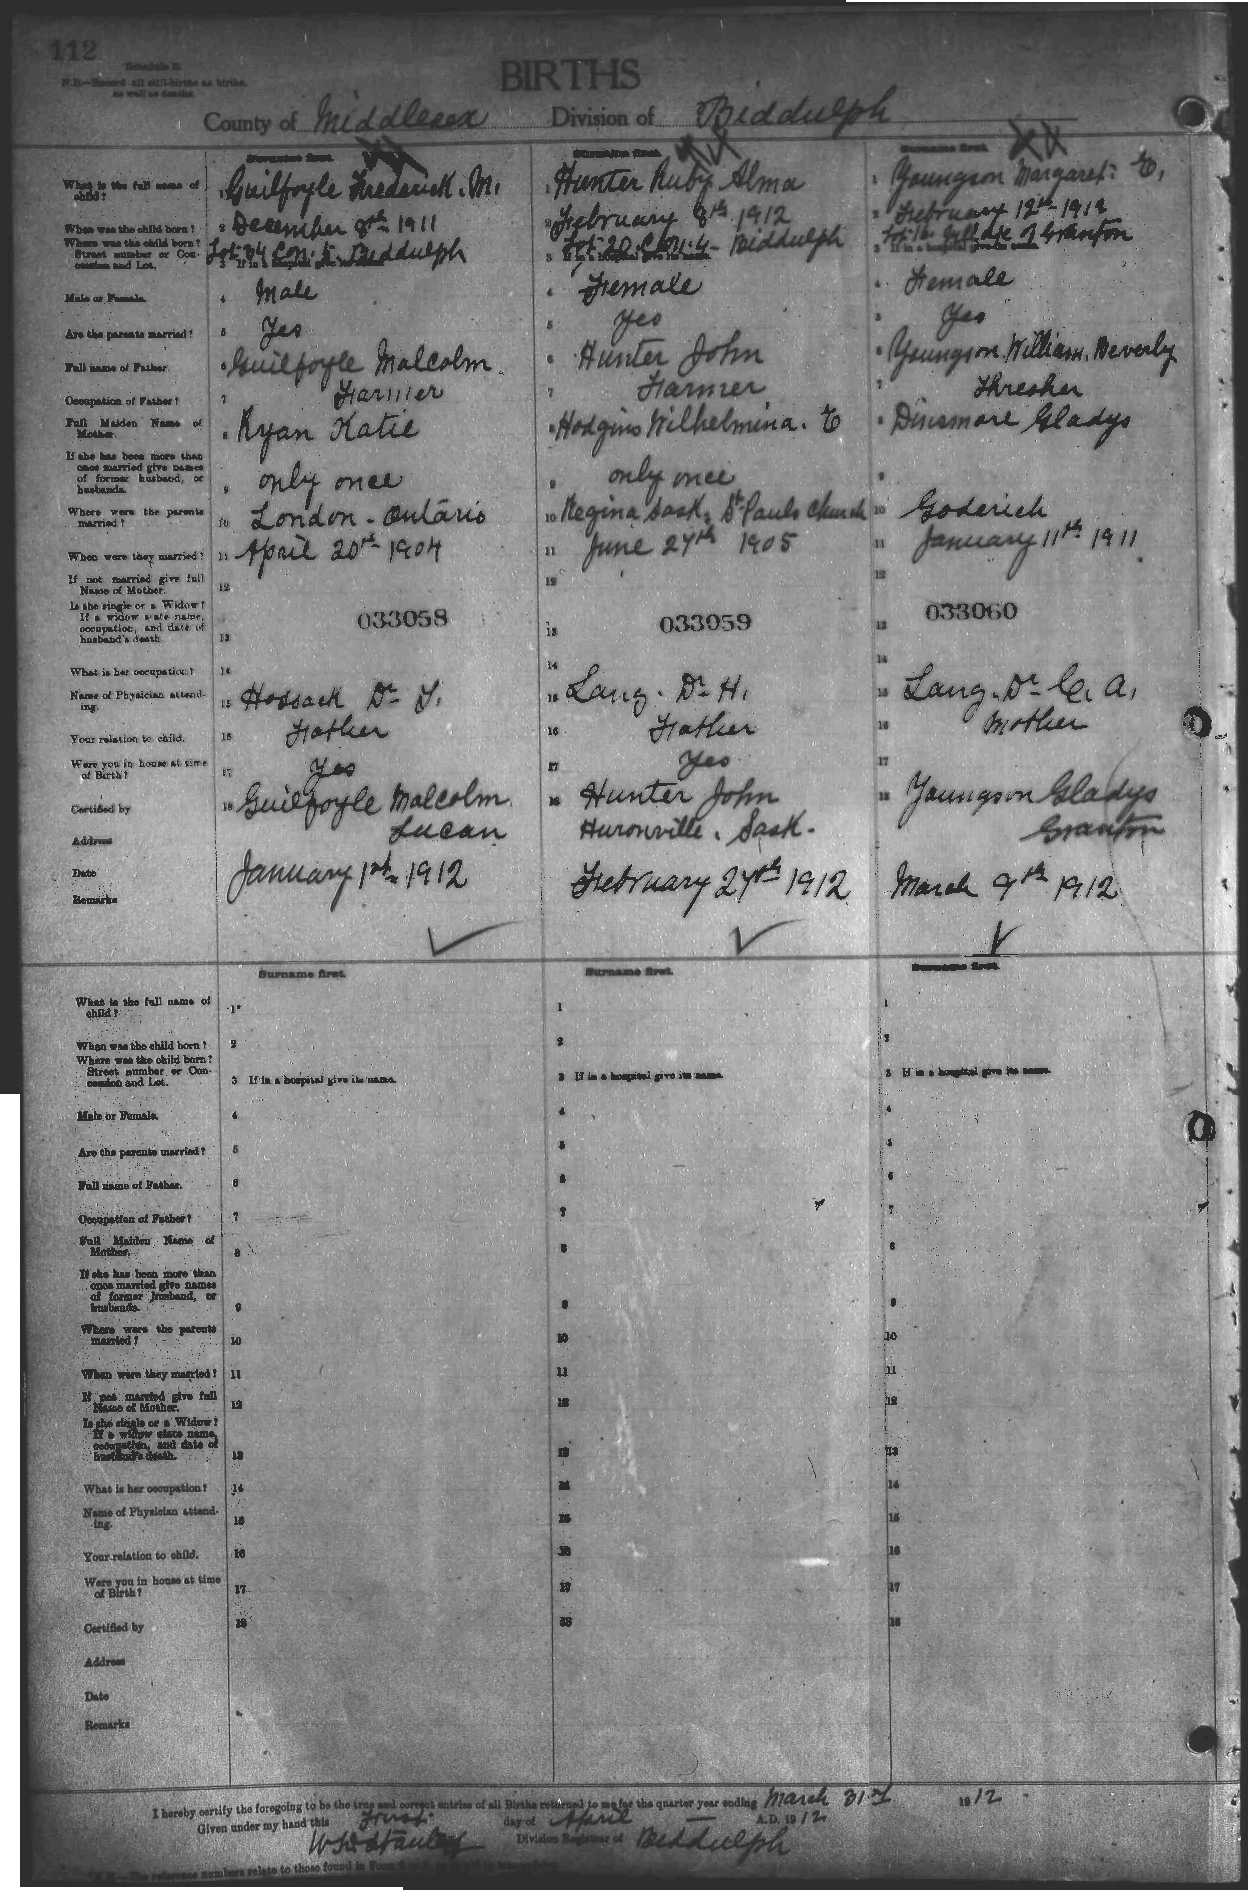 112
Schedule B.
N.B.—Record all still-births as births,
as well as deaths.
BIRTHS
County of Middlesex Division of Biddulph
Surname first. Surname first. Surname first.
What is the full name of child? 1 Guilfoyle Frederick. M. 1 Hunter Ruby Alma 1 Youngson Margaret. E.
When was the child born? 2 December 8th 1911 2 February 8th 1912 2 February 12th 1912
Where was the child born? Street number or Concession and Lot. 3 Lot 34 Con. 5. Biddulph 3 Lot 20. Con. 4 - Biddulph 3 Lot 16 Granton
If in a hospital give its name. If in a hospital give its name. If in a hospital give its name.
Male or Female. 4 Male 4 Female 4 Female
Are the parents married? 5 Yes 5 Yes 5 Yes
Full name of Father. 6 Guilfoyle Malcolm. 6 Hunter John 6 Youngson William. Beverly
Occupation of Father? 7 Farmer 7 Farmer 7 Thresher
Full Maiden Name of Mother. 8 Ryan Katie 8 Hodgins Wilhelmina. E 8 Dinsmore Gladys
If she has been more than once married give names of former husband, or husbands. 9 only once 9 only once 9
Where were the parents married? 10 London - Ontario 10 Regina Sask. St Pauls Church 10 Goderich
When were they married? 11 April 20th 1904 11 June 27th 1905 11 January 11th 1911
If not married give full Name of Mother. 12 12 12
Is she single or a Widow? If a widow state name, occupation, and date of husband's death. 13 033058 13 033059 13 033060
What is her occupation? 14 14 14
Name of Physician attending. 15 Hossack Dr J. 15 Lang. Dr H. 15 Lang. Dr C. A.
Your relation to child. 16 Father 16 Father 16 Mother
Were you in house at time of Birth? 17 Yes 17 Yes 17
Certified by 18 Guilfoyle Malcolm. 18 Hunter John 18 Youngson Gladys
Address Lucan Huronville. Sask. Granton
Date January 1st 1912 February 27th 1912 March 9th 1912
Remarks
Surname first. Surname first. Surname first.
What is the full name of child? 1 1 1
When was the child born? 2 2 2
Where was the child born? Street number or Concession and Lot. 3 If in a hospital give its name. 3 If in a hospital give its name. 3 If in a hospital give its name.
Male or Female. 4 4 4
Are the parents married? 5 5 5
Full name of Father. 6 6 6
Occupation of Father? 7 7 7
Full Maiden Name of Mother. 8 8 8
If she has been more than once married give names of former husband, or husbands. 9 9 9
Where were the parents married? 10 10 10
When were they married? 11 11 11
If not married give full Name of Mother. 12 12 12
Is she single or a Widow? If a widow state name, occupation, and date of husband's death. 13 13 13
What is her occupation? 14 14 14
Name of Physician attending. 15 15 15
Your relation to child. 16 16 16
Were you in house at time of Birth? 17 17 17
Certified by 18 18 18
Address
Date
Remarks
I hereby certify the foregoing to be the true and correct entries of all Births returned to me for the quarter year ending March 31st 1912
Given under my hand this First day of April A.D. 1912
W. D. Stanley Division Registrar of Biddulph
The reference numbers relate to those found in Form